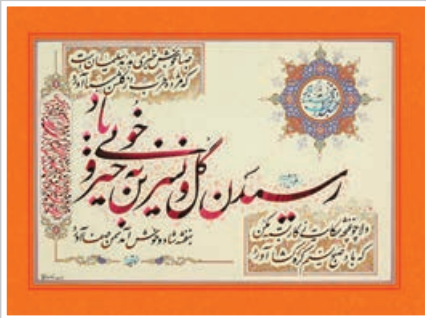 صبا به خوش خبری هدهد سلیمان است
که مژده طرب از گلشن سبا آورد
رسیدن گل و نسرین به خیر و خوبی باد
بنفشه شاد و خوش آمد سمن صفا آورد
دلا چو غنچه شکایت ز کار بسته مکن
که باد صبح نسیم گره گشا آورد